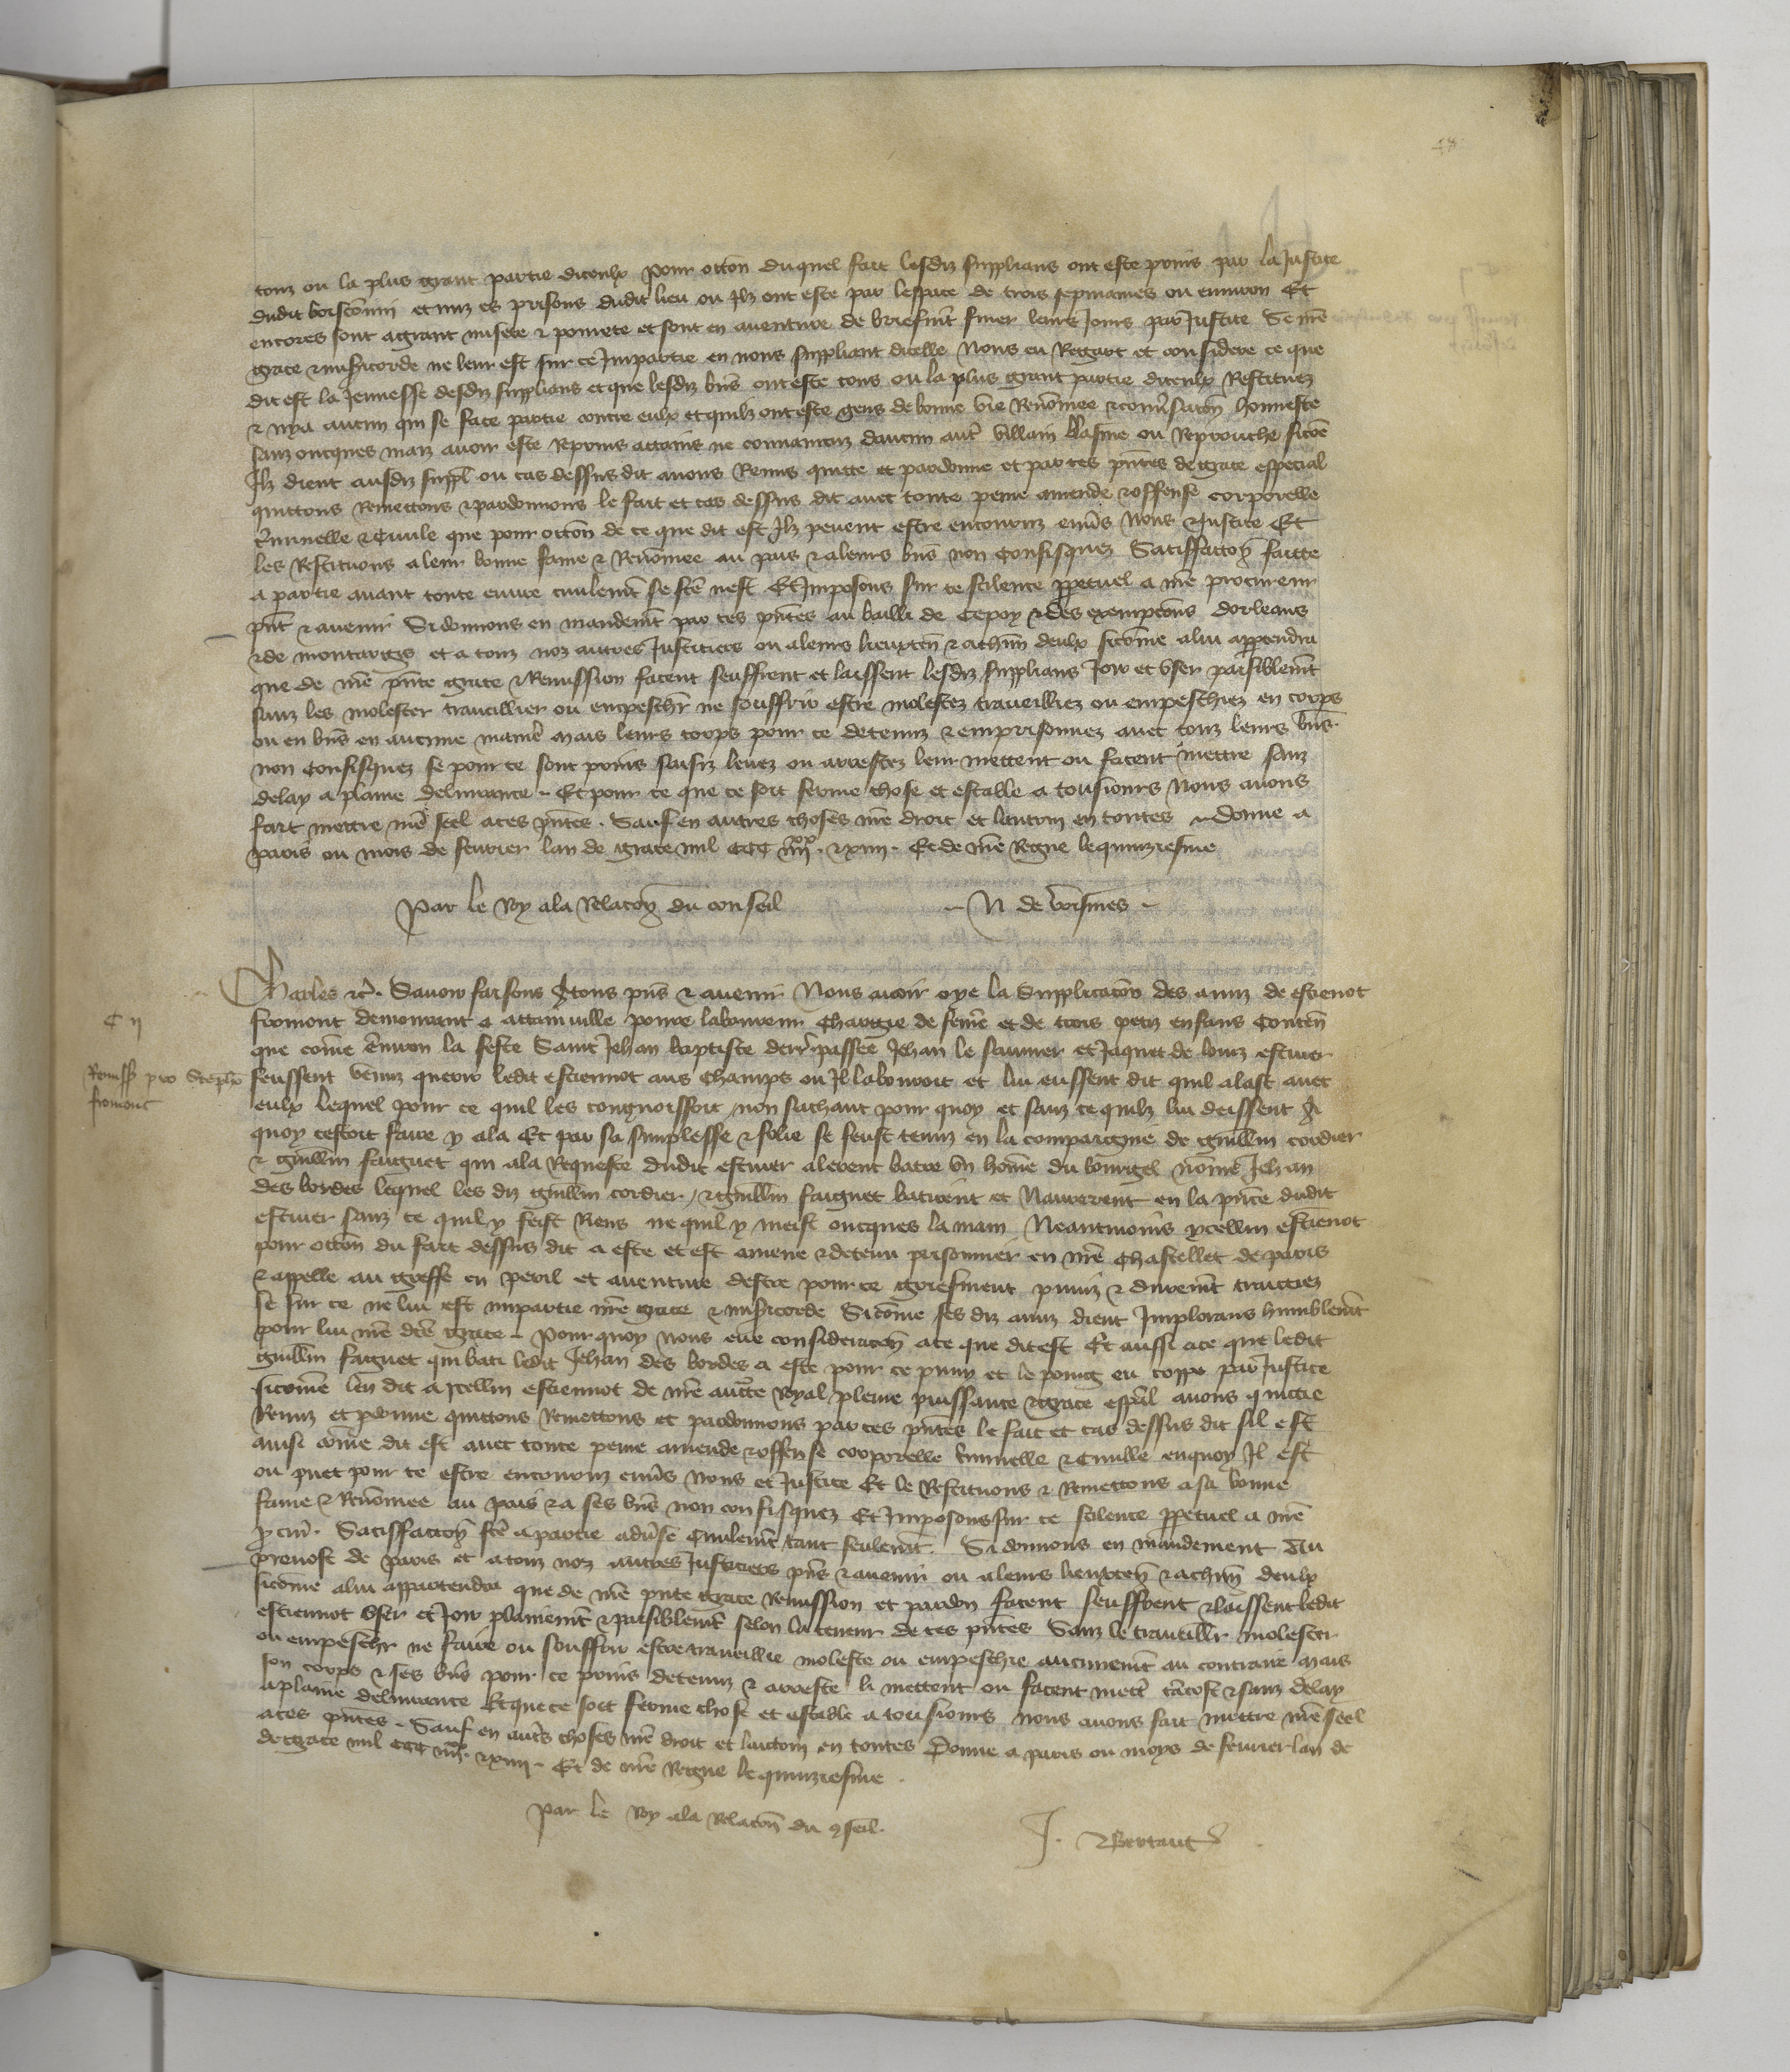 58
touz ou la plus grant partie diceulx Pour occon duquel fait lesdiz supplians ont este prins par la Justice
dudit boiscommun et mis es prisons dudit lieu ou Ilz ont este par lespace de trois sepmaines ou environ Et
encores sont a grant misere & povrete et sont en aventure de briefmt finer leurs Jours par Justice Se nre
grace & misericorde ne leur est sur ce Impartie en nous suppliant dicelle Nous eu Regart et considere ce que
dit est la Jeunesse desdiz supplians et que lesdiz bns ont este tous ou la plus grant partie diceulx Restituez
& nya aucun qui se face partie contre eulx et quilz ont este gens de bonne vie Renommee & conversacon honneste
sanz oncques maiz avoir este Reprins attains ne convaincuz daucun autre villain blasme ou Reprouche sicome
Ilz dient ausdiz suppl ou cas dessus dit avons Remis quitte et pardonne et par ces pntes de grace especial
quittons Remettons & pardonnons le fait et cas dessus dit avec toute peine amende & offense corporelle
criminelle & Civile que pour occon de ce que dit est Ilz pevent estre encouruz envs Nous & Justice Et
les Restituons a leur bonne fame & Renommee au pais & a leurs bns non Confisquez Satisfaccon faitte
a partie avant toute euvre civilemt se fce nest Et Imposons sur ce scilence ppetuel a nre procureur
pnt & avenir Si donnons en mandemt par ces pntes au bailli de Cepoy & des exempcons dorleans
& de montargis et a touz noz autres Justiciers ou a leurs lieuxten & a chun deulx sicome a lui appendra
que de nre pnte grace & Remission facent seuffrent et laissent lesdiz supplians Joir et user paisiblemt
sanz les molester traveillier ou empeschr ne souffrir estre molestez traveilliez ou empeschiez en corps
ou en bns en aucune manie Mais leurs corps pour ce detenuz & emprisonnez avec touz leurs bns
non Confisquez se pour ce sont prins saisiz levez ou arrestez leur mettent ou facent mettre sanz
delay a plaine delivrance - Et pour ce que ce soit ferme chose et estable a tousjours Nous avons
fait mettre nre seel a ces pntes . Sauf en autres choses nre droit et lautrui en toutes - donne a
paris ou mois de fevrier lan de grace mil CCC IIIIxx . & xiiii . Et de nre Regne le quinziesme
Par le Roy a la Relacon du conseil - N de voisines -
Charles &c . Savoir faisons A tous pns & avenir Nous avoir oye la Supplicacon des amis de estienot
fromont demourant a attainville povre laboureur Chargie de feme et de trois petiz enfans Conten
que come environ la feste Saint Jehan baptiste derr passee Jehan le saunier et Jaquet de louz estiver
feussent venuz querir ledit estiennot aus champs ou Il labouroit et lui eussent dit quil alast avec
eulx lequel pour ce quil les congnoissoit non sachant pour quoy et sanz ce quilz lui deissent pr
quoy cestoit faire y ala Et par sa simplesse & folie se feust tenuz en la compaignie de guillm cordier
& guillm faiguet qui a la Requeste dudit estiver alerent batre un home du bourgel nome Jehan
des bordes lequel les diz guillm cordier / & guillm faiguet batirent et Navrerent en la pnce dudit
estiver sanz ce quil y feist Riens ne quil y meist oncques la main Neantmoins ycellui estienot
pour occon du fait dessus dit a este et est amene & detenu prisonnier en nre Chastellet de paris
& appelle au greffe en peril et aventure destre pour ce griefment puniz & duremt traictiez
se sur ce ne lui est impartie nre grace & misericorde Sicome ses diz amis dient Implorans humblemt
pour lui nre dce grace - Pour quoy nous eue consideracon a ce que dit est Et aussi a ce que ledit
guillm faiguet qui bati ledit Jehan des bordes a este pour ce puny et le poing eu coppe par Justice
sicome len dit a Icellui estiennot de nre auctte Royal pleine puissance & grace espal avons quictie
Remis et pdonne quittons Remettons et pardonnons par ces pntes le fait et cas dessus dit sil est
ainsi come dit est avec toute peine amende & offense corporelle criminelle & Civille en quoy Il est
ou puet pour ce estre encouruz envs Nous et Justice Et le Restituons & Remettons a sa bonne
fame & Renommee au pais & a ses bns non confisquez Et Imposons sur ce scilence ppetuel a nre
pcur . Satisfaccon fce a partie adverse Civilemt tant seulemt . Si donnons en mandement Au
prevost de paris et a touz noz autres Justiciers pns & avenir ou a leurs lieuxten & a chun deulx
sicome a lui appartendra que de nre pnte grace Remission et pardon facent seuffrent & laissent ledit
estiennot user et Joir plainemt & paisiblemt selon la teneur de ces pntes Sanz le traveillr molester
ou empeschr ne faire ou souffrir estre traveillie moleste ou empeschie aucunemt au contraire Mais
son corps & ses bns pour ce prins detenuz & arreste li mettent ou facent mettre tantost & sanz delay
a plaine delivrance Et que ce soit ferme chose et estable a tousjours nous avons fait mettre nre seel
a ces pntes . Sauf en autrs choses nre droit et lautrui en toutes Donne a paris ou moys de fevrier lan de
de grace mil CCC IIIIxx & xiiii . Et de nre Regne le quinziesme .
Par le Roy a la Relacon du conseil . J . Bertaut
C ii
Remiss pro Stepho
fromont